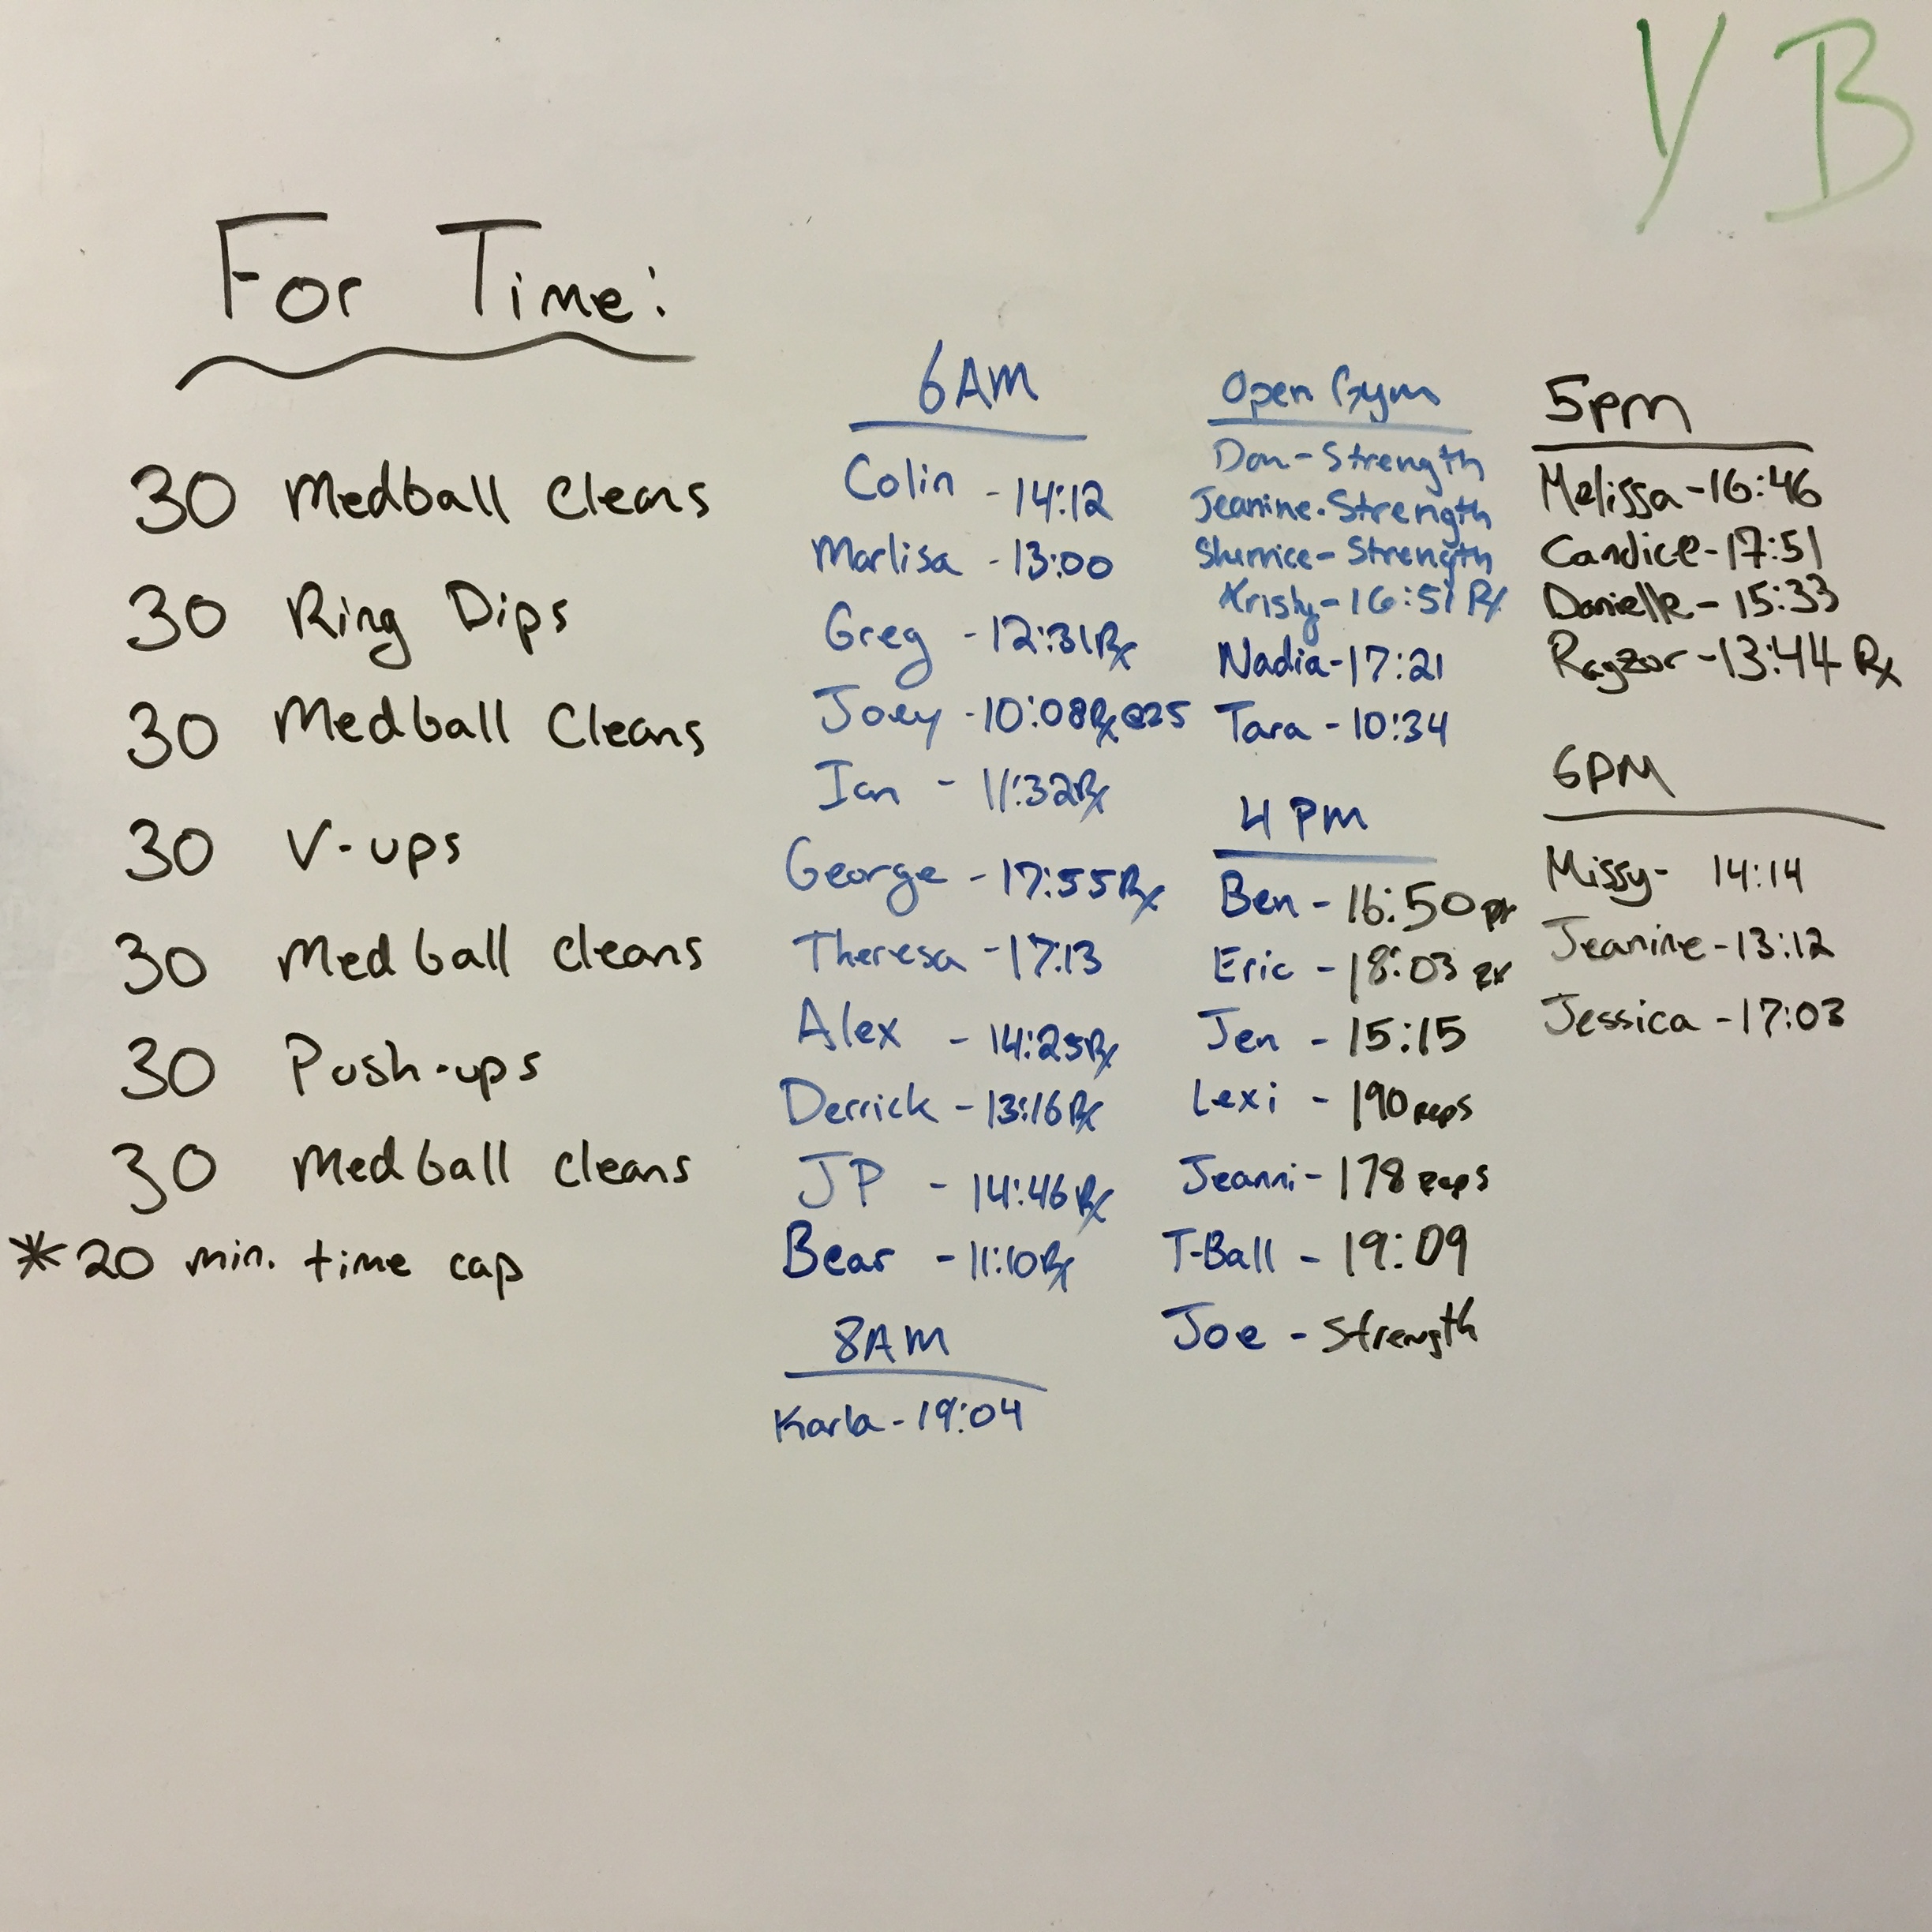 YB
For Time:
30 Medball Cleans
30 Ring Dips
30 Medball Cleans
30 V-ups
30 Medball Cleans
30 Push-ups
30 Medball Cleans
*20 min. time cap
6AM
Colin - 14:12
Marlisa - 13:00
Greg - 12:31 Rx
Joey - 10:08 Rx @25
Ian - 11:32 Rx
George - 17:55 Rx
Theresa - 17:13
Alex - 14:25 Rx
Derrick - 13:16 Rx
JP - 14:46 Rx
Bear - 11:10 Rx
8AM
Karla - 19:04
Open Gym
Don - Strength
Jeanine - Strength
Strength
Kristy - 16:51 Rx
Nadia - 17:21
Tara - 10:34
4 PM
Ben - 16:50
Eric - 18:03
Jen - 15:15
Lexi - 190 reps
Jeanni - 178 reps
T-Ball - 19:09
Joe - Strength
5pm
Melissa - 16:46
Candice - 17:51
Danielle - 15:33
Rayzor - 13:44 Rx
6PM
Missy - 14:14
Jeanine - 13:12
Jessica - 17:03